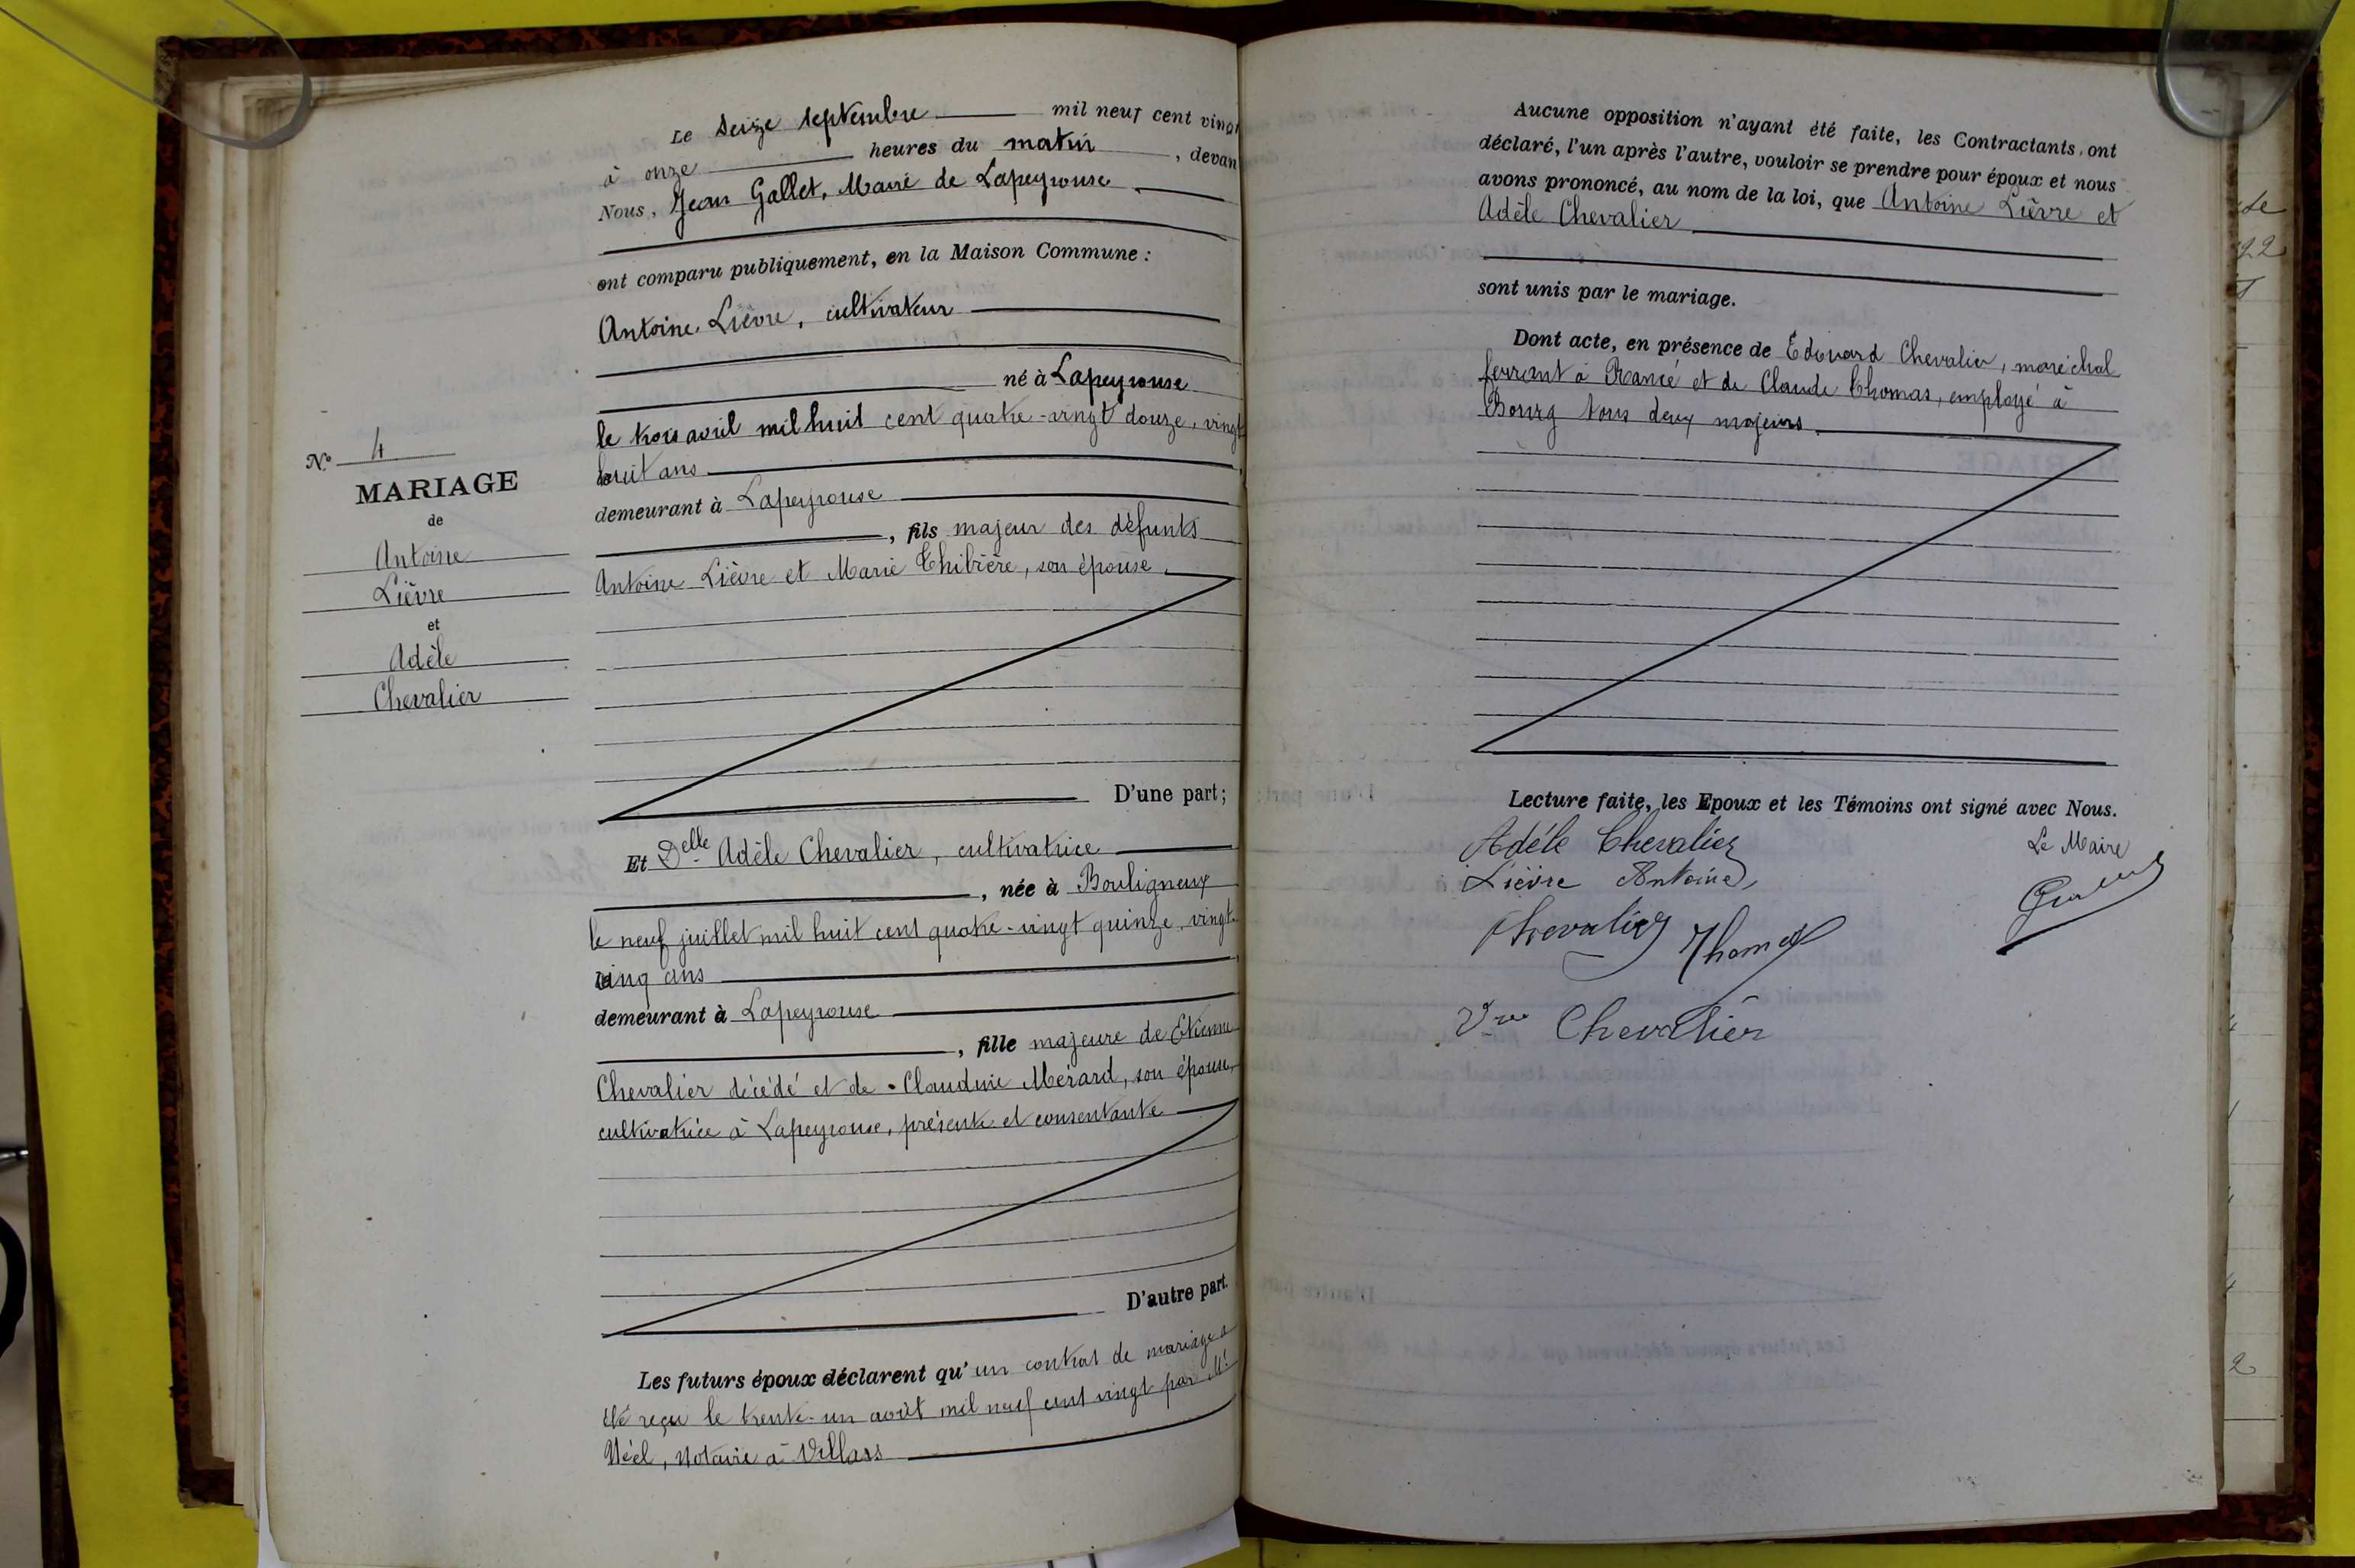 Le seize septembre mil neuf cent vingt
à onze heures du matin, devan
Nous, Jean Gallet, Maire de Lapeyrouse.
ont comparu publiquement, en la Maison Commune :
Antoine Lièvre, cultivateur
né à Lapeyrouse
le trois avril mil huit cent quatre-vingt douze, vingt
huit ans
demeurant à Lapeyrouse
, fils majeur des défunts
Antoine Lièvre et Marie Thibière, son épouse.
D'une part;
N° 4
MARIAGE
de
Antoine
Lièvre
et
Adèle
Chevalier
Et Delle Adèle Chevalier, cultivatrice
, née à Bouligneux
le neuf juillet mil huit cent quatre-vingt quinze, vingt-
cinq ans
demeurant à Lapeyrouse
, fille majeure de Etienne
Chevalier décédé et de Claudine Mérard, son épouse,
cultivatrice à Lapeyrouse, présente et consentante
D'autre part.
Les futurs époux déclarent qu'un contrat de mariage a
été reçu le trente-un août mil neuf cent vingt par Me
Néel, Notaire à Villars
Aucune opposition n'ayant été faite, les Contractants, ont
déclaré, l'un après l'autre, vouloir se prendre pour époux et nous
avons prononcé, au nom de la loi, que Antoine Lièvre et
Adèle Chevalier
sont unis par le mariage.
Dont acte, en présence de Edouard Chevalier, maréchal
ferrant à Rancé et de Claude Thomas, employé à
Bourg tous deux majeurs.
Lecture faite, les Epoux et les Témoins ont signé avec Nous.
Adéle Chevalier
Le Maire
Lièvre Antoine
Chevalier Thomas
Vve Chevalier